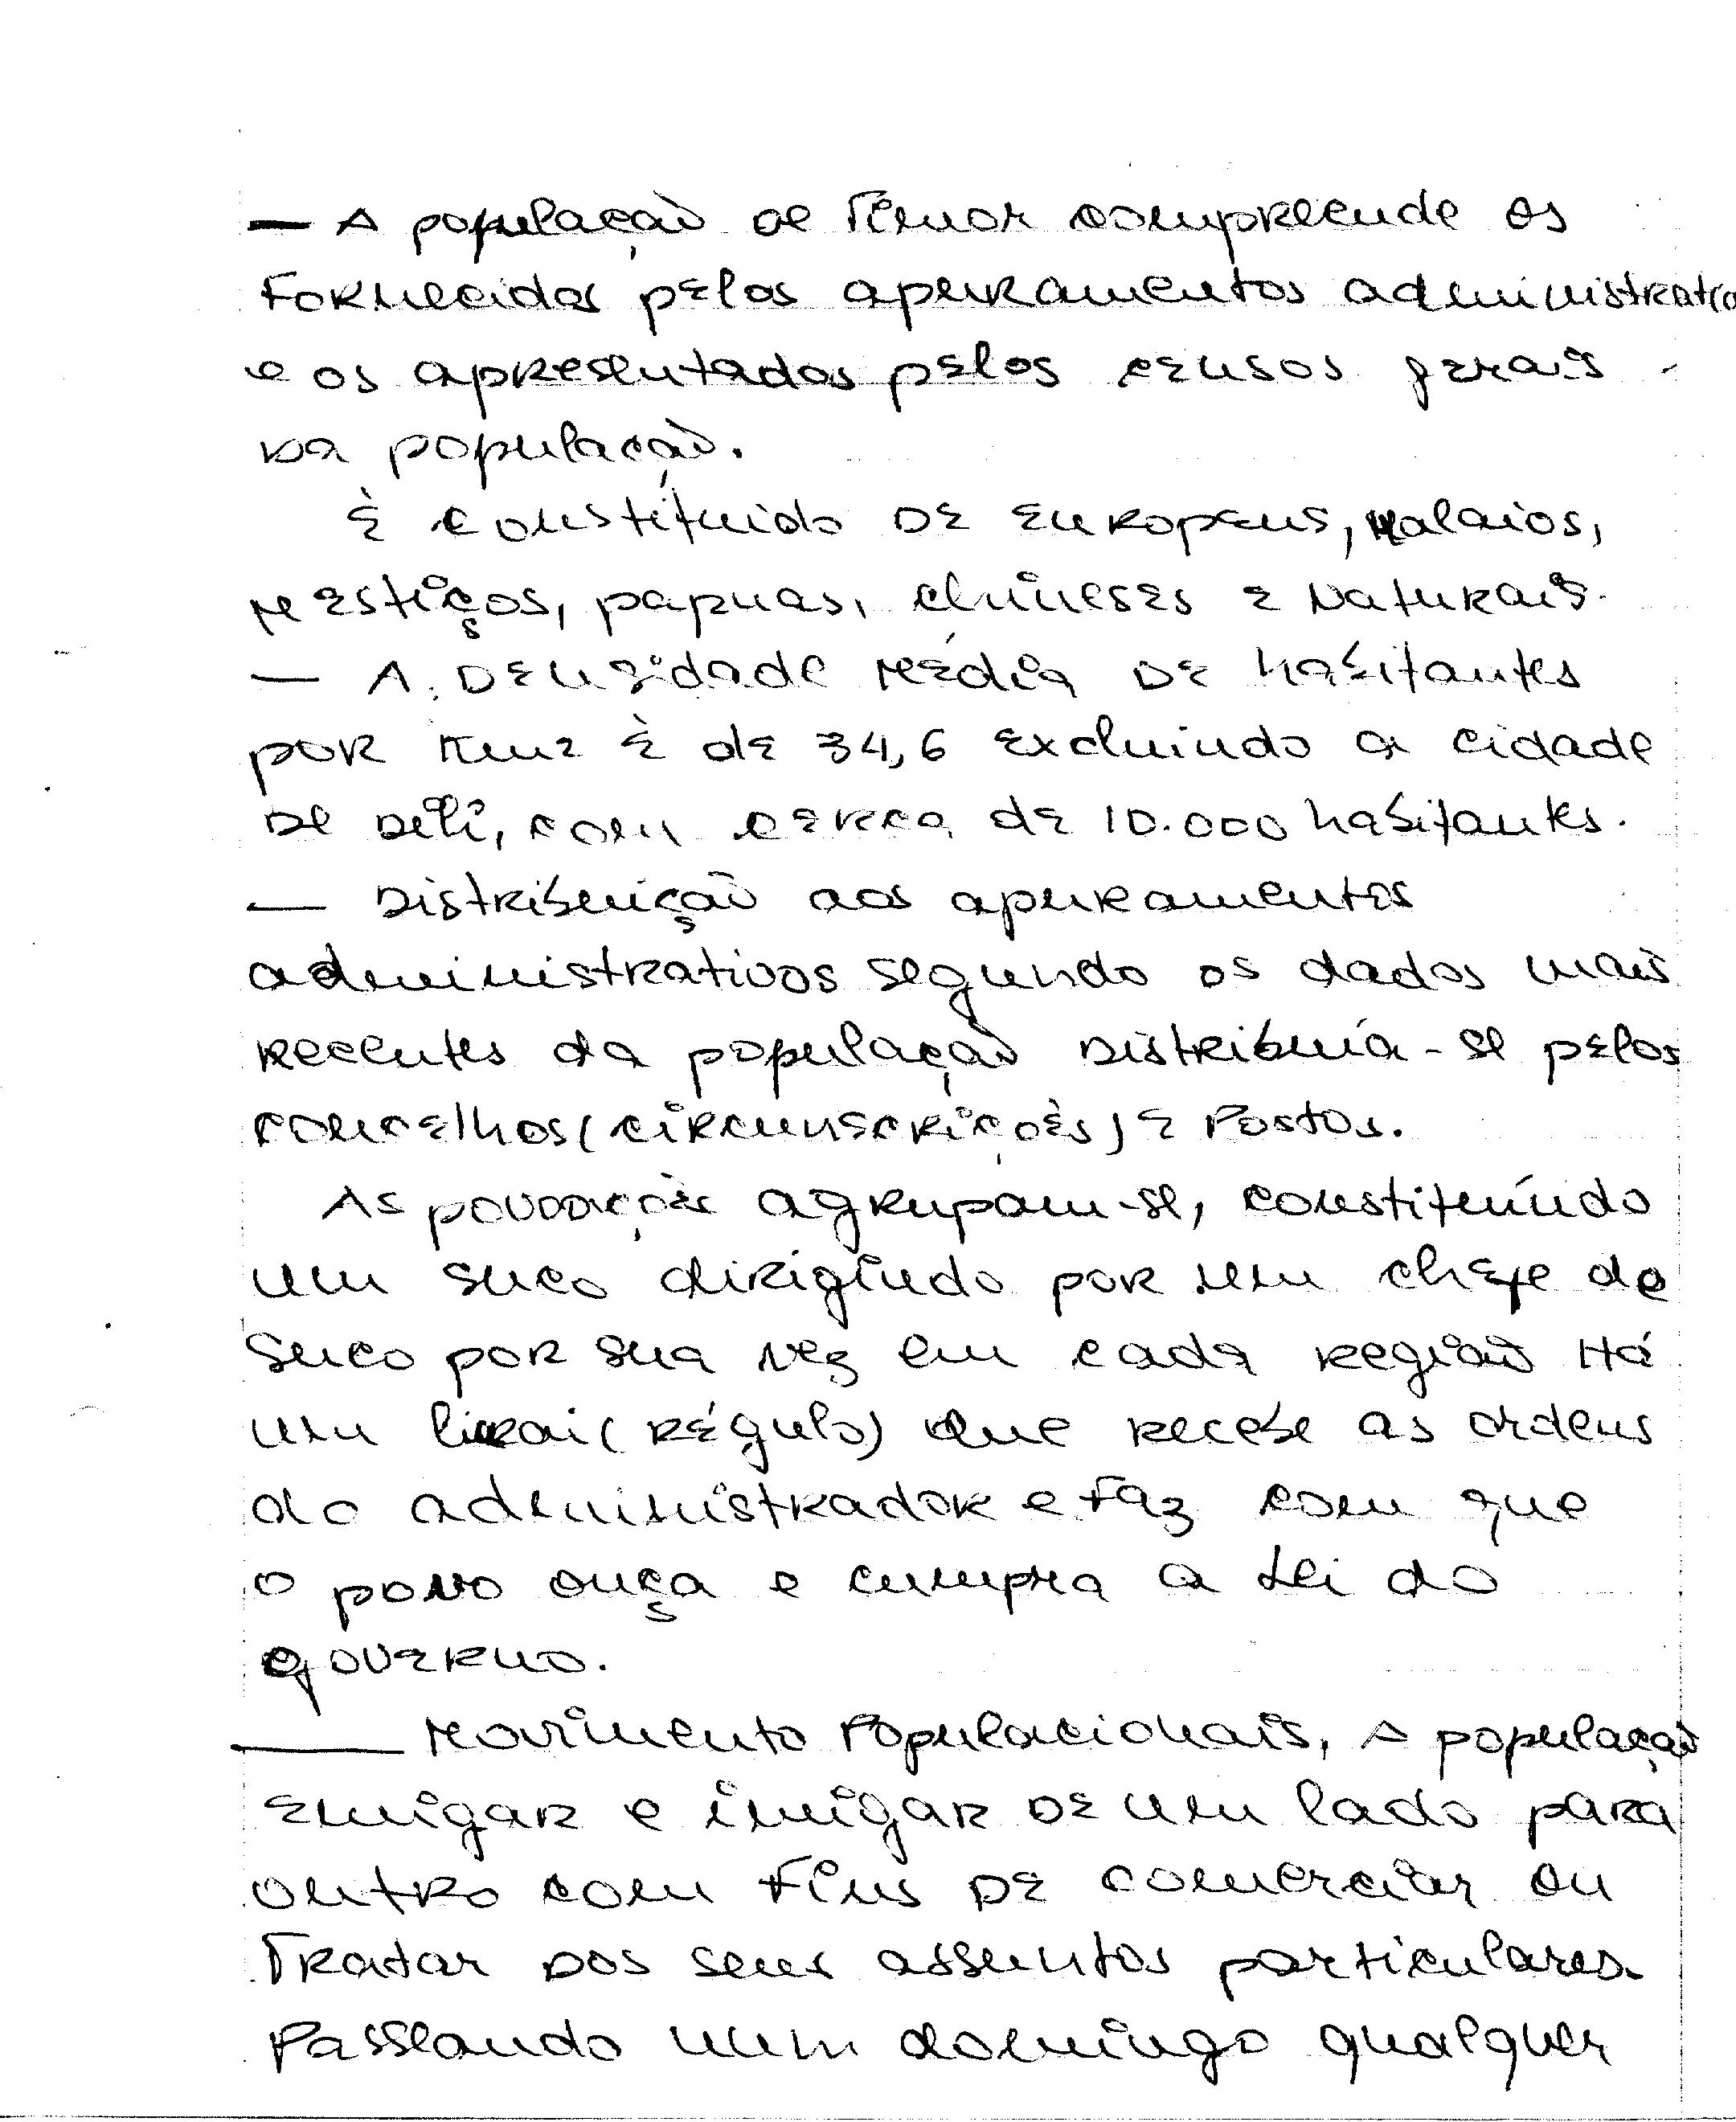 — A população de Timor compreende os
Fornecidos pelos apuramentos administrativo
e os apresentados pelos censos gerais
da população.
È constítuido DE Europeus, malaios,
Mestiços, papuas, chineses E Naturais.
— A DENSidade Média DE habitantes
por Km2 È de 34,6 Excluindo a cidade
De Dili, com cerca de 10.000 habitantes.
— Distribuição aos apuramentos
administrativos segundo os dados mais
recentes da população Distribuía-se pelos
concelhos (circunscriçoès) E Postos.
As povoaçoès agrupam-se, constituíndo
um suco dirigindo por um chefe de
Suco por sua vez em cada região Há
um liurai (Régulo) que recebe as ordens
do administrador e Faz com que
o povo ouça e cumpra a Lei do
governo.
— Movimento Populacionais, A população
Emigar e imigar DE um lado para
outro com Fins DE comerciar ou
Tratar Dos seus assuntos particulares.
Passeando num domingo qualquer